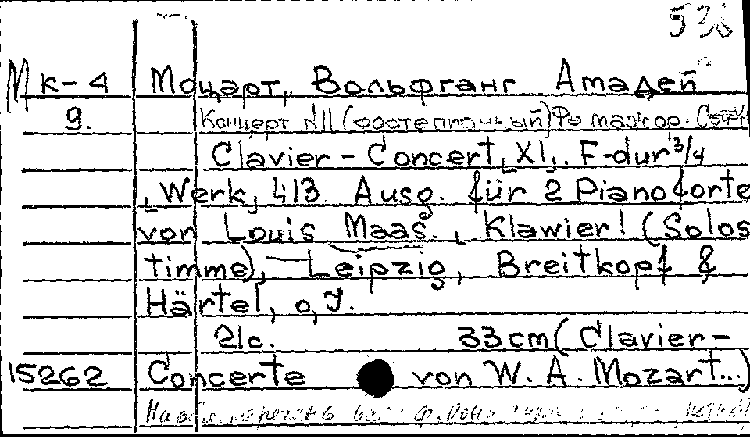 538
Мк-4 Моцарт, Вольфганг Амадей
9. Концерт №11 (фортепианный) Фа мажор.
Clavier-Concert, XI, F-dur 3/4
, Werk, 413. Ausg. für 2 Pianoforte
von Louis Maas., Klawier I (Solos
timme), Leipzig, Breitkopf &
Härtel, o, J.
21c. 33cm (Clavier-
15262 Concerte von W. A. Mozart...)